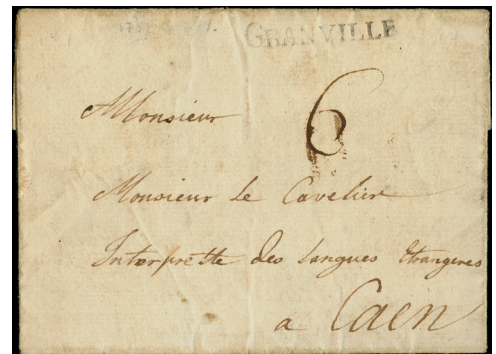 GRANVILLE
Monsieur
6
Monsieur le Cavelier
Interprette des langues Etrangeres
a Caen